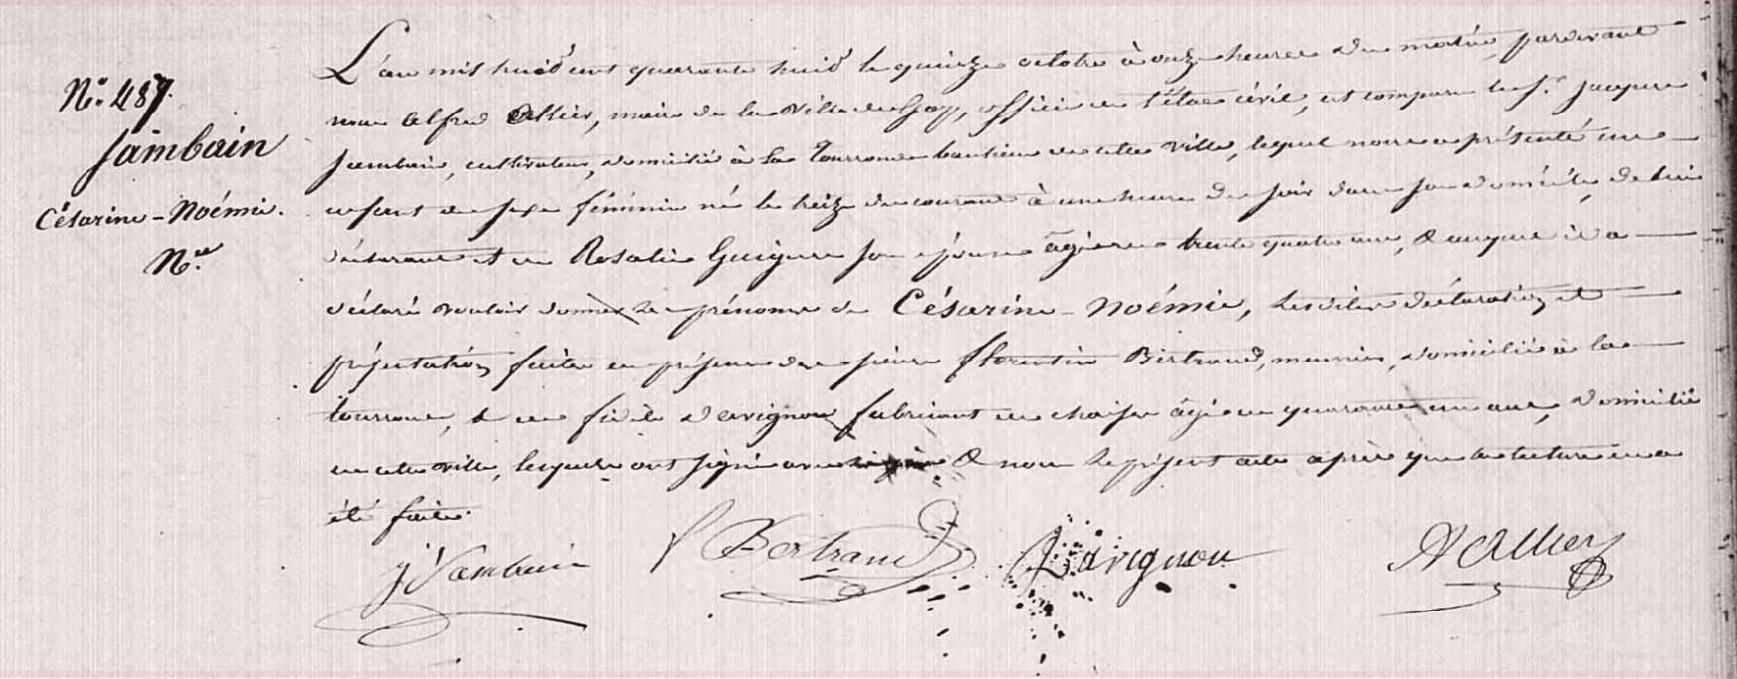 N.° 487.
Jambain
Césarine - Noémie.
N.ce
L'an mil huit cent quarante huit le quinze octobre à onze heures du matin, pardevant
nous Alfred Allier, maire de la ville de Gap, officier de l'état civil, est comparu le s.r Jacques
Jambain, cultivateur, domicilié à la Tourronde banlieue de cette ville, lequel nous a présenté un
enfant de sexe féminin né le treize du courant à une heure du soir dans son domicile, de lui
déclarant et de Rosalie Guigues son épouse âgée de trente quatre ans, & auquel il a
déclaré vouloir donner les prénoms de Césarine - Noémie, lesdites déclaration et
présentation faites en présence des sieurs Florentin Bertrand, meunier, domicilié à la
tourronde, & de fidèle Davignon fabricant de chaises âgé de quarante un ans, domicilié
en cette ville, lesquels ont signé avec & nous le présent acte après que lecture en a
été faite.
J Jambain F Bertrand Davignon A Allier